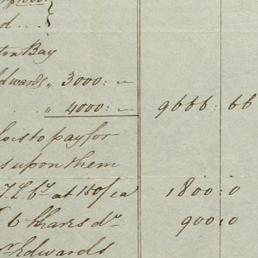 d...
ton Bay
dwards „ 3000: ~
„ 4000: ~ 9666: 66
to pay for
upon them
at 180/ ea 1800: 0
6 Shares do 900: 0
Edwards